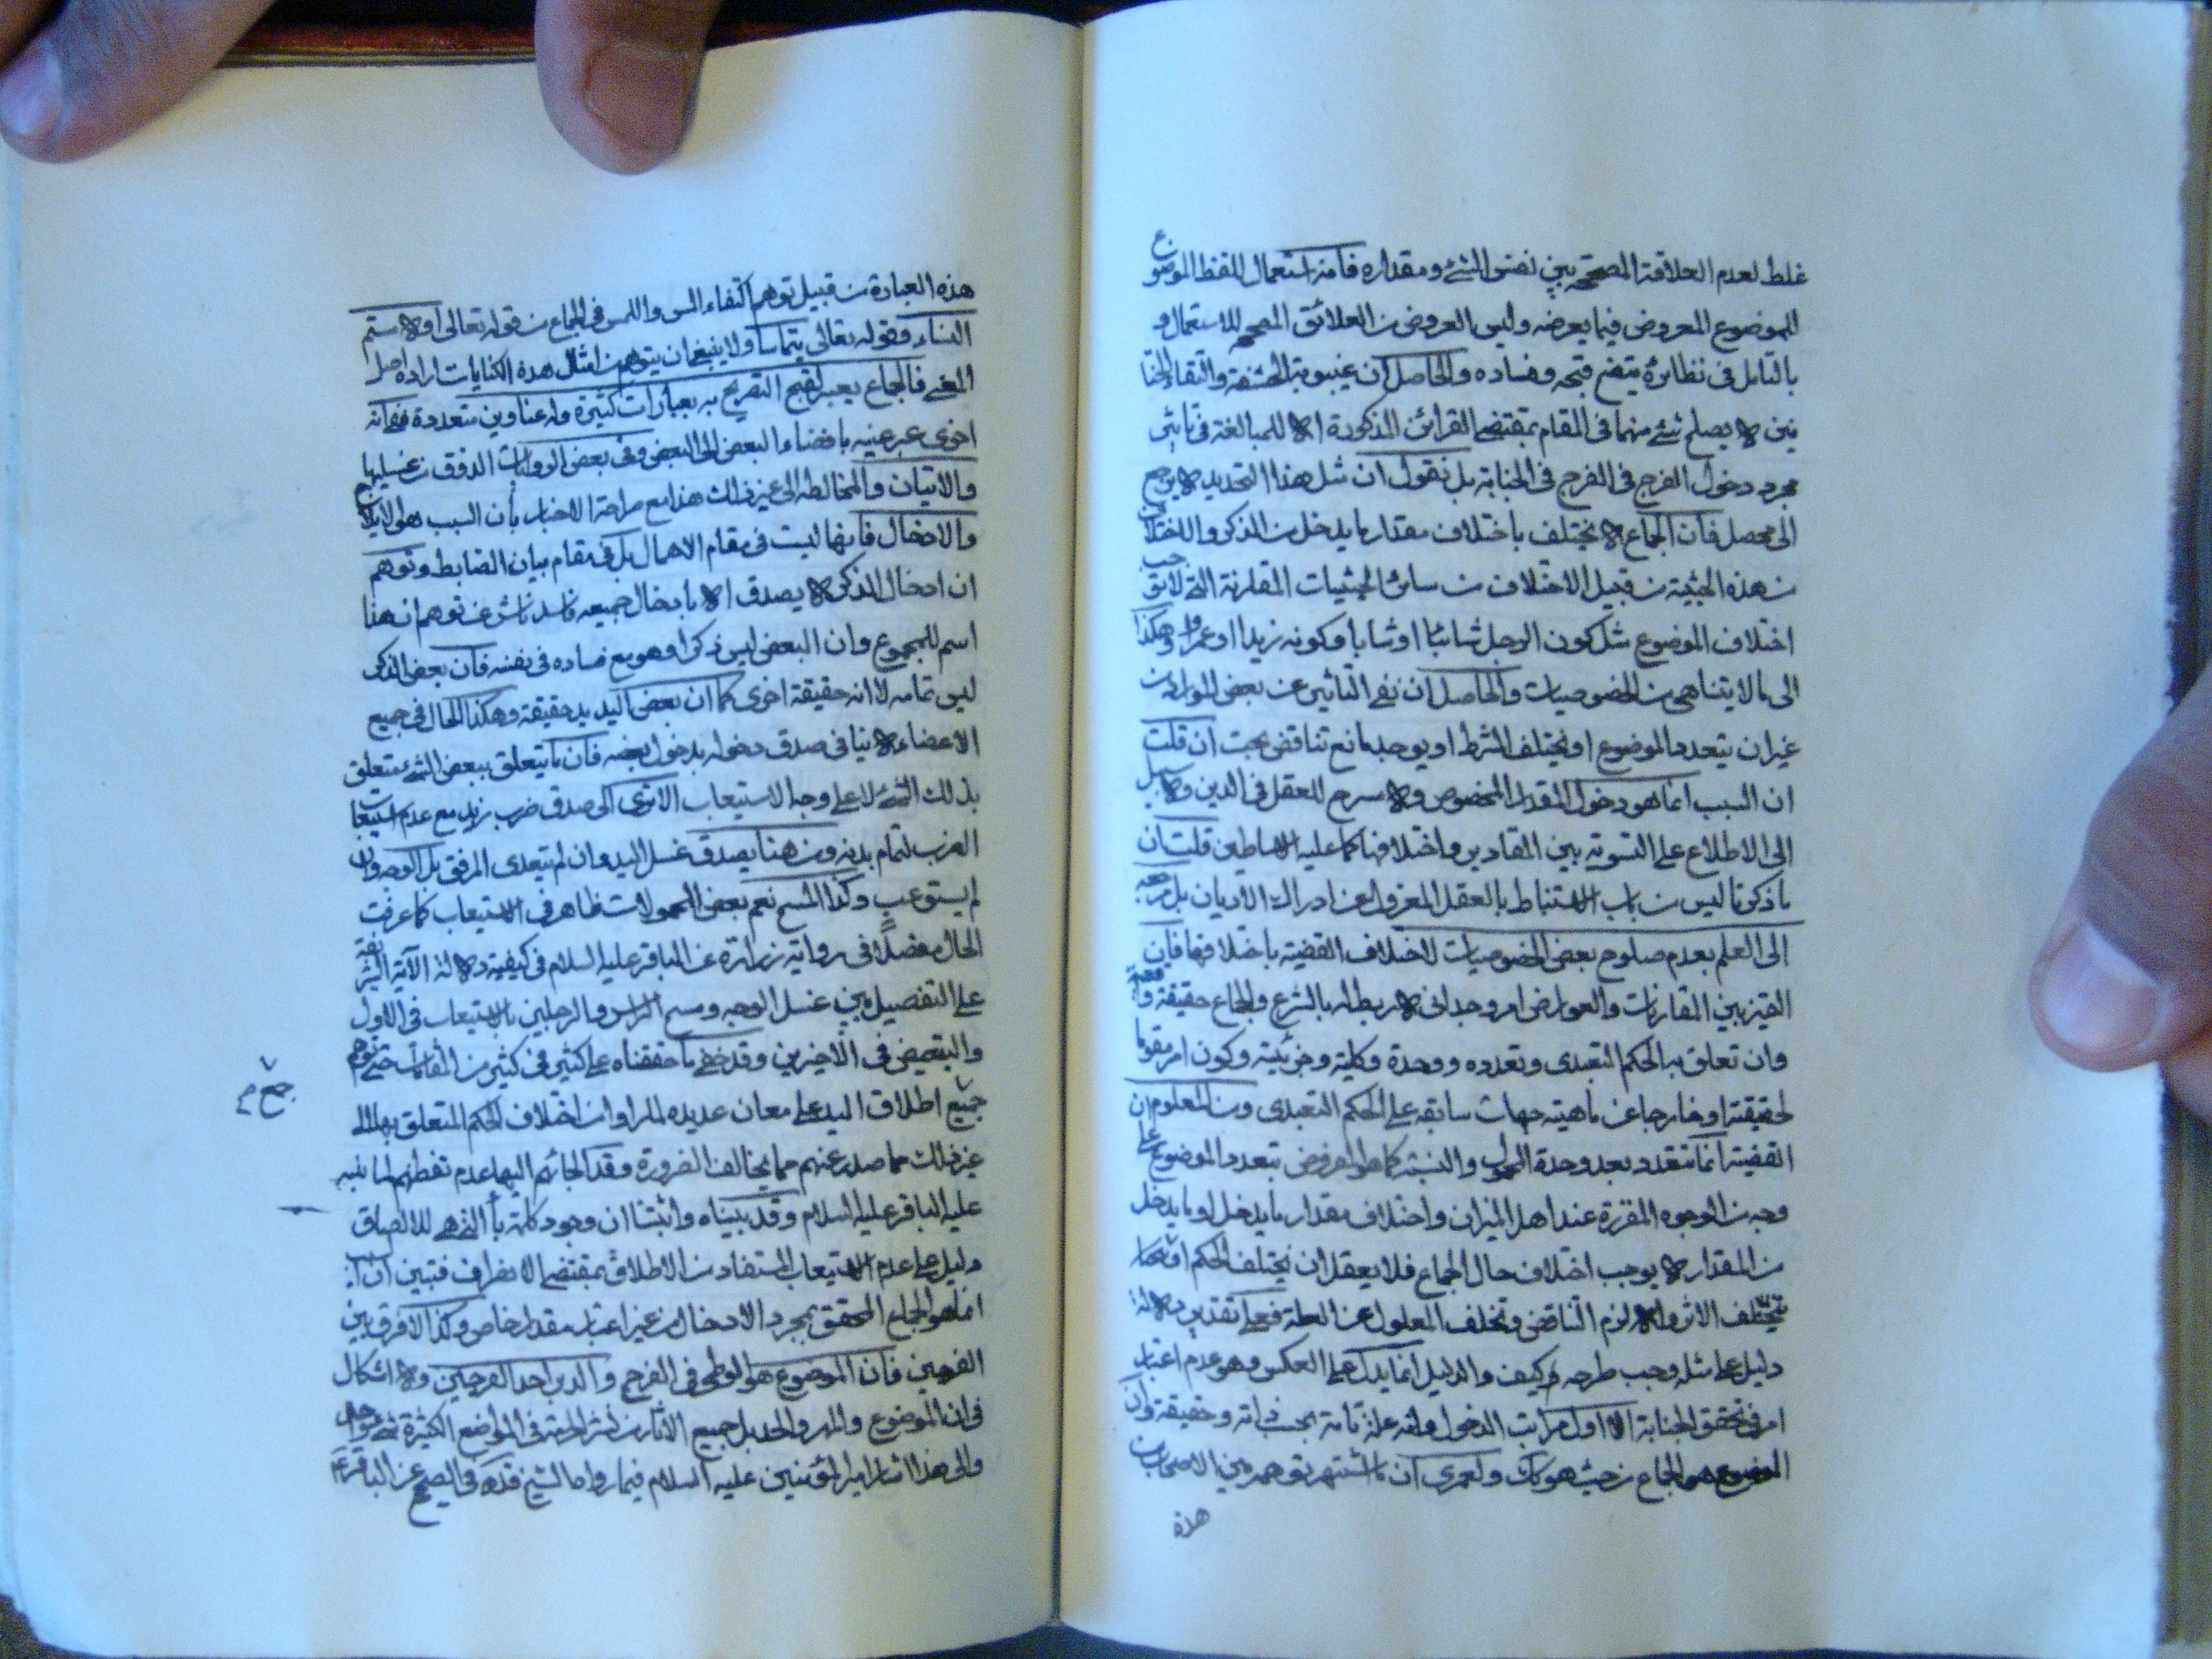 غلط لعدم العلاقة المصححة بين نفس الشئ ومقداره فانه استعمال اللفظ الموضوع
للموضوع المعروض فيما يعرضه وليس العروض من العلائق المصححة للاستعمال و
بالتامل في نظائره يتضح قبحه وفساده والحاصل ان غيبوبة الحشفة والتقاء الختا
نين لا يصلح شئ منهما في المقام بمقتضى القرائن المذكورة الا للمبالغة في تاثير
مجرد دخول الفرج في الفرج في الجنابة بل نقول ان مثل هذا التحديد لا يرجع
الى محصل فان الجماع لا يختلف باختلاف مقدار ما يدخل من الذكر والاختلاف
من هذه الحيثية من قبيل الاختلاف من سائر الحيثيات المقارنة التي لا توجب
اختلاف الموضوع مثل كون الرجل شائبا او شابا وكونه زيدا او عمروا وهكذا
الى ما لا يتناهى من الخصوصيات والحاصل ان نفى التأثير عن بعض الموارد من
غير ان يتعدد الموضوع او يختلف الشرط او يوجد مانع تناقض بحت ان قلت
ان السبب انما هو دخول المقدار المخصوص ولا مسرح للعقل في الدين ولا سبيل
الى الاطلاع على التسوية بين المقادير واختلافها كما عليه الاساطين قلت ان
ما ذكرنا ليس من باب الاستنباط بالعقل المعزول عن ادراك الاديان بل مرجعه
الى العلم بعدم صلوح بعض الخصوصيات لاختلاف القضية باختلافها فان
التميز بين المقارنات والعوارض امر وجداني لا ربط له بالشرع والجماع حقيقة واقعية
وان تعلق به الحكم التعبدى وتعدده ووحدة وكلية وجزئية وكون امر مقوما
لحقيقة او خارجا عن ماهية جهات سابقة على الحكم التعبدى ومن المعلوم ان
القضية انما تتعدد بعد وحدة المحمول والنسبة كما هو المفروض بتعدد الموضوع على
وجه من الوجوه المقررة عند اهل الميزان واختلاف مقدار ما يدخل او ما يدخل
من المقدار لا يوجب اختلاف حال الجماع فلا يعقل ان يختلف الحكم
يختلف الاثر والا لزم التناقض وتخلف المعلول عن العلة فعلى تقدير دلالة
دليل على مثله وجب طرحه وكيف والدليل انما يدل على العكس وهو عدم اعتبار
امر في تحقق الجنابة الا اول مراتب الدخول وانه علة تامة بحسب ذاته وحقيقته وان
الموضوع هو الجماع من حيث هو كك ولعمرى ان ما اشتهر توهمه بين الاصحاب من
هذه
هذه العبارة من قبيل توهم اكتفاء المس واللمس في الجماع من قوله تعالى او لامستم
النساء وقوله تعالى يتماسا ولا ينبغي ان يتوهم من امثال هذه الكنايات ارادة اصل
المعنى فالجماع يعبر لقبح التصريح به بعبارات كثيرة وله عناوين متعددة
اخرى عبر عنه بافضاء البعض الى البعض وفي بعض الروايات الدفق
والاتيان والمخالطة الى غير ذلك هذا مع صراحة الاخبار بأن السبب هو الايلاج
والادخال فانها ليست في مقام الاهمال بل في مقام بيان الضابط وتوهم
ان ادخال الذكر لا يصدق الا بادخال جميعه فاسد ناش عن توهم ان هذا
اسم للمجموع وان البعض ليس ذكرا وهو مع فساده في نفسه فان بعض الذكر
ليس تمامه لا انه حقيقة اخرى كما ان بعض اليد يد حقيقة وهكذا الحال في جميع
الاعضاء لا ينافي صدق دخوله بدخول بعضه فان ما يتعلق ببعض الشئ متعلق
بذلك الشئ لا على وجه الاستيعاب الا ترى الى صدق ضرب زيد مع عدم استيعاب
الضرب لتمام بدنه ومن هنا يصدق غسل اليد وان لم يتعدى المرفق بل الوجه وان
لم يستوعب وكذا المسح نعم بعض المحمولات ظاهر في الاستيعاب كما عرفت
الحال مفصلا في رواية زرارة عن الباقر عليه السلام في كيفية دلالة الآية الشريفة
على التفصيل بين غسل الوجه ومسح الراس والرجلين بالاستيعاب في الاول
والتبعيض في الاخيرين وقد خفى ما حققناه على كثير في كثير من المقامات حتى توهم
جمع اطلاق اليد على معان عديدة لما راوا من اختلاف الحكم المتعلق بها الى
جمع م
غير ذلك مما صدر عنهم مما يخالف الضرورة وقد الجائهم اليها عدم تفطنهم لما نبه
عليه الباقر عليه السلام وقد بيناه واثبتنا ان وجود كلمة با التي هي للالصاق
دليل على عدم الاستيعاب المستفاد من الاطلاق بمقتضى الانصراف فتبين ان
انما هو الجماع المحقق بمجرد الادخال من غير اعتبار مقدار خاص وكذا لا فرق بين
الفرجين فان الموضوع هو الوطى في الفرج والدبر احد الفرجين ولا اشكال
في ان الموضوع والمهر والحد بل جميع الاثار من نشر الحرمة في المواضع الكثيرة شئ واحد
والى هذا اشار امير المؤمنين عليه السلام فيما رواه الشيخ قده في الصحيح عن الباقر ع